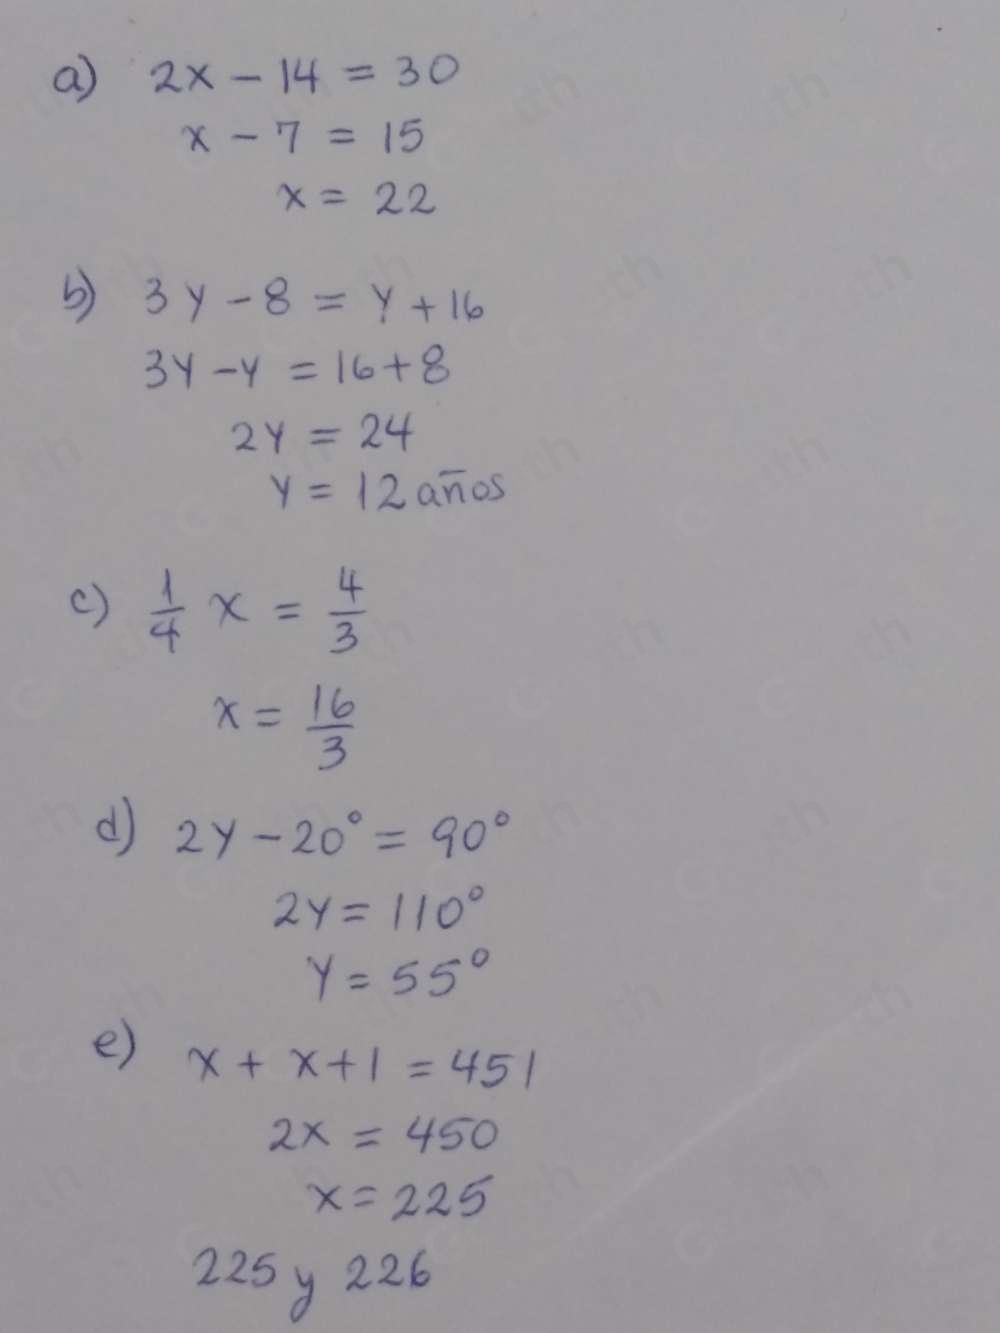 a) 2x - 14 = 30
x - 7 = 15
x = 22
b) 3y - 8 = y + 16
3y - y = 16 + 8
2y = 24
y = 12 años
c) 1/4 x = 4/3
x = 16/3
d) 2y - 20° = 90°
2y = 110°
y = 55°
e) x + x + 1 = 451
2x = 450
x = 225
225 y 226